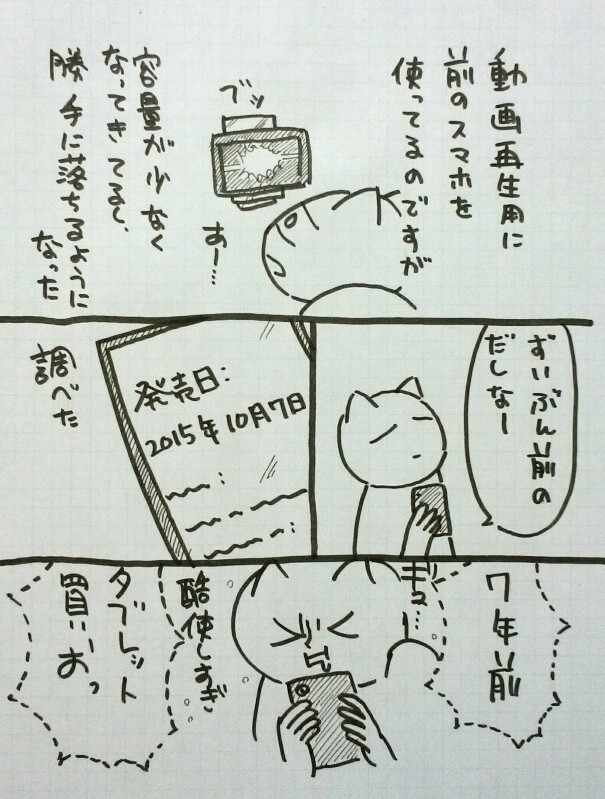 動画再生用に
前のスマホを
使ってるのですが
ブッ
あー…
容量が少なく
なってきてるし、
勝手に落ちるように
なった
ずいぶん前の
だしなー
発売日:
2015年10月7日
調べた
7年前
ギュ…
酷使しすぎ
タブレット
買いおっ